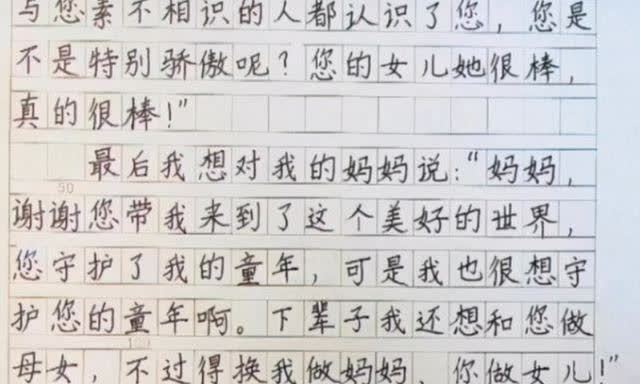 与您素不相识的人都认识了您，您是
不是特别骄傲呢？您的女儿她很棒，
真的很棒！”
最后我想对我的妈妈说：“妈妈，
50
谢谢您带我来到了这个美好的世界，
您守护了我的童年，可是我也很想守
护您的童年啊。下辈子我还想和您做
母女，不过得换我做妈妈，你做女儿！”